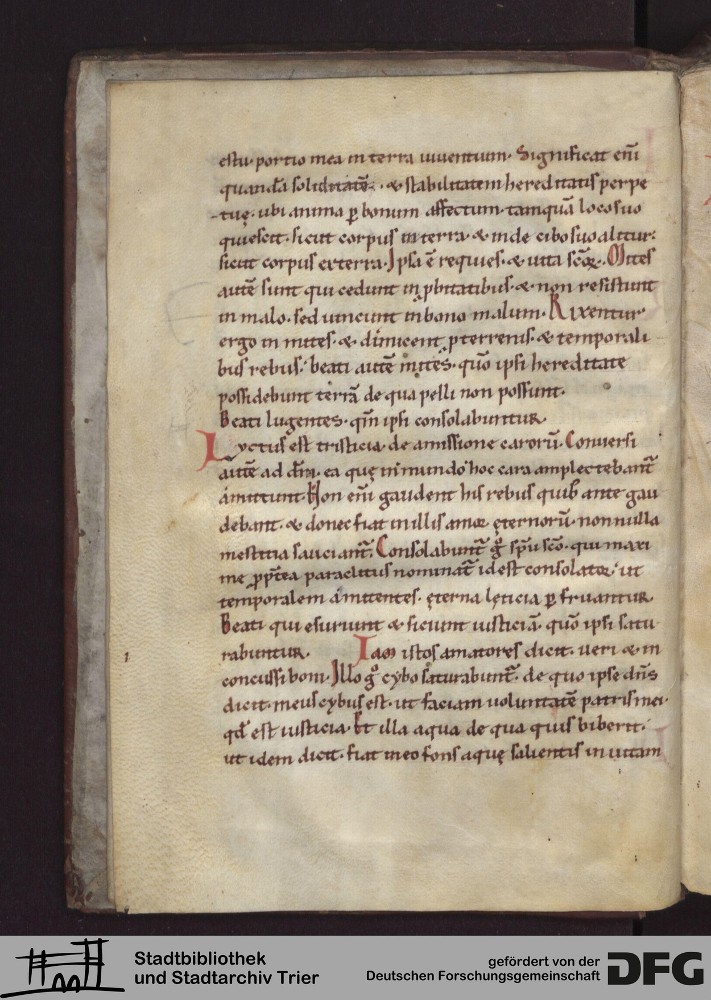 es tu. portio mea in terra uiuentium. Significat eni̅
quanda̅ soliditate̅. & stabilitatem hereditatis perpe
tuę. ubi anima ꝑ bonum affectum. tamqua̅ loco suo
quiescit. sicut corpus in terra. & inde cibo suo alitur.
sicut corpus ex terra. Ipsa e̅ requies. & uita sc̅oꝝ. Mites
aute̅ sunt qui cedunt inp̱bitatibus. & non resistunt
in malo. sed uincunt in bono malum. Rixentur
ergo inmites. & dimicent p̱ terrenis. & temporali
bus rebus. beati aute̅ mites. quo̅ ipsi hereditate
possidebunt terra̅ de qua pelli non possunt.
Beati lugentes. qm̅ ipsi consolabuntur.
Luctus est tristicia. de amissione caroru̅. Conuersi
aute̅ ad dm̅. ea quę in mundo hoc cara amplectebant̅
amittunt. Non eni̅ gaudent his rebus quib; ante gau
debant. & donec fiat in illis amor ęternoru̅. nonnulla
mestitia sauciant̅. Consolabunt̅ gͦ sp̅u sc̅o. qui maxi
me p̱pt̅ea paraclitus nominat̅ id est consolator. ut
temporalem amittentes. ęterna lęticia ꝑfruantur.
Beati qui esuriunt & siciunt iusticia̅. quo̅ ipsi satu
rabuntur. Iam istos amatores dicit. ueri & in
concussi boni. Illo gͦ cybo saturabunt̅. de quo ipse dn̅s
dicit. meus cybus est. ut faciam uoluntate̅ patris mei.
qd̅ est iusticia. Et illa aqua de qua quis biberit.
ut idem dicit. fiat in eo fons aquę salientis in uitam
Stadtbibliothek
und Stadtarchiv Trier
gefördert von der
Deutschen Forschungsgemeinschaft
DFG